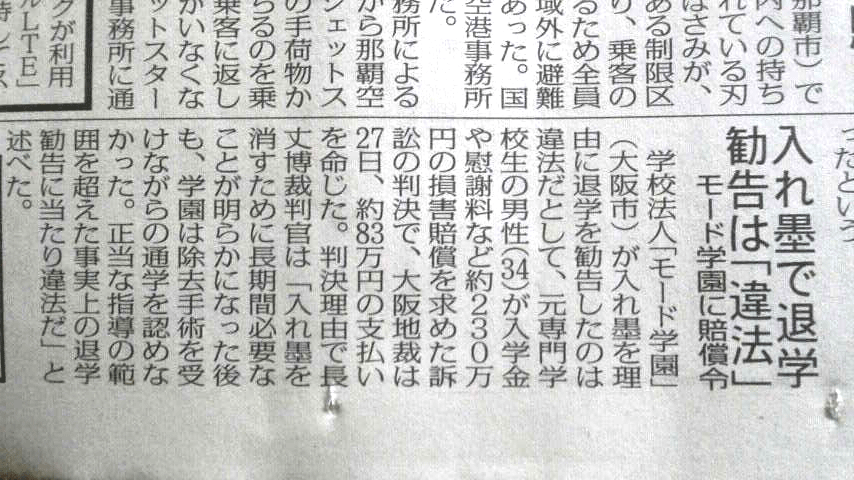 那覇市）で
内への持ち
れている刃
はさみが、
ある制限区
り、乗客の
るため全員
域外に避難
あった。国
空港事務所
た。
務所による
から那覇空
ェットス
の手荷物か
ちるのを乗
乗客に返し
がいなくな
ットスター
事務所に通
クが利用
LTE」
ったという
入れ墨で退学
勧告は「違法」
モード学園に賠償令
学校法人「モード学園」
（大阪市）が入れ墨を理
由に退学を勧告したのは
違法だとして、元専門学
校生の男性（34）が入学金
や慰謝料など約２３０万
円の損害賠償を求めた訴
訟の判決で、大阪地裁は
27日、約83万円の支払い
を命じた。判決理由で長
丈博裁判官は「入れ墨を
消すために長期間必要な
ことが明らかになった後
も、学園は除去手術を受
けながらの通学を認めな
かった。正当な指導の範
囲を超えた事実上の退学
勧告に当たり違法だ」と
述べた。